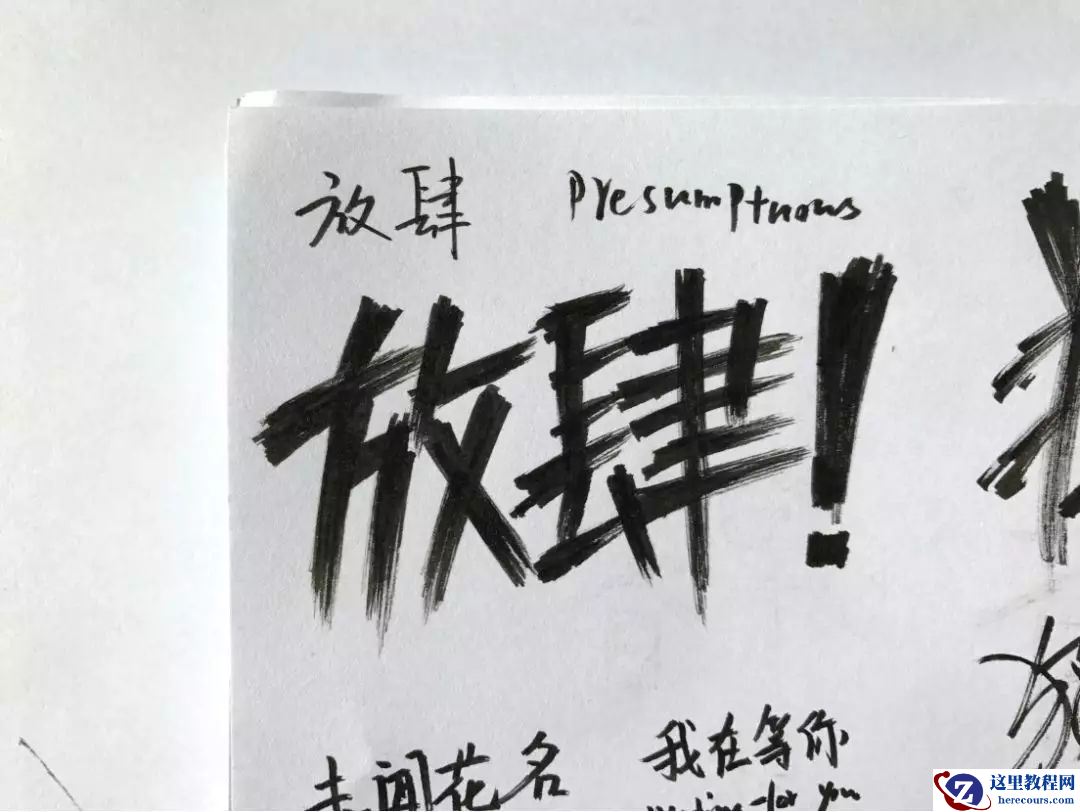 放肆 Presumptuous
放肆!
未闻花名
我在等你
waiting for you
这里教程网
herecours.com